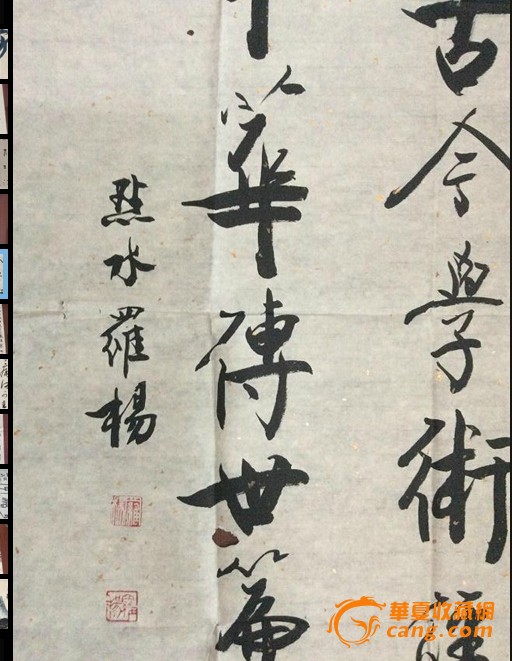 古今學術
華傳世篇
水羅楊
華夏收藏網
cang.com